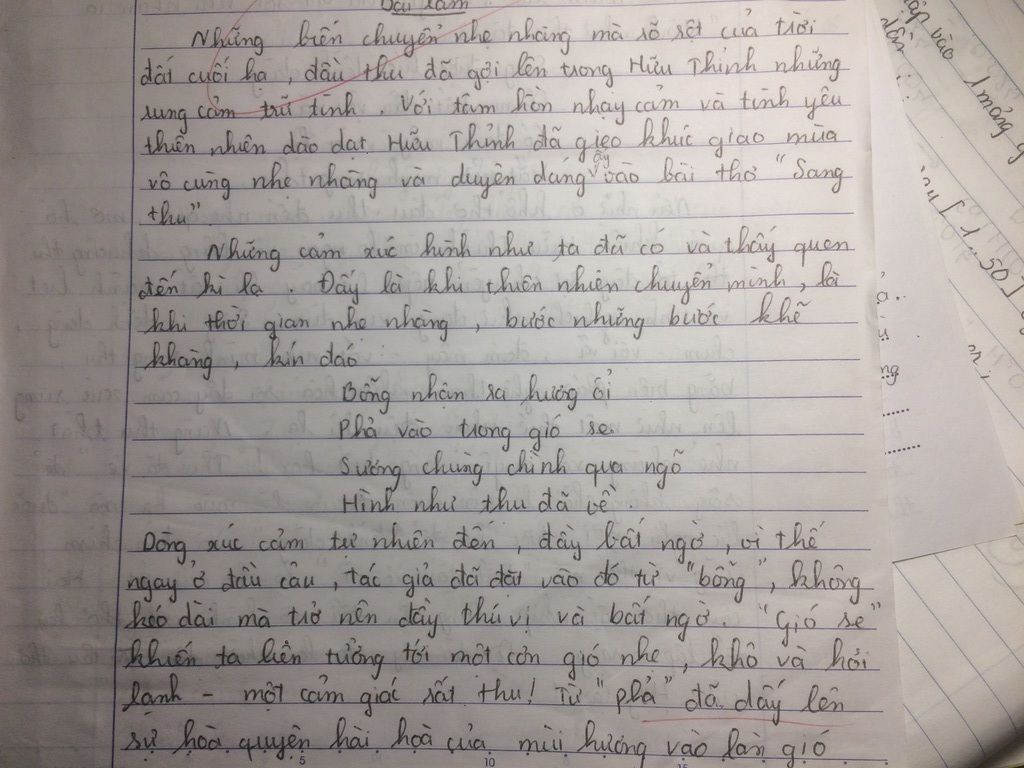 Bài làm
Những biến chuyển nhẹ nhàng mà rõ rệt của trời
đất cuối hạ, đầu thu đã gợi lên trong Hữu Thỉnh những
rung cảm trữ tình. Với tâm hồn nhạy cảm và tình yêu
thiên nhiên dào dạt Hữu Thỉnh đã gieo khúc giao mùa
vô cùng nhẹ nhàng và duyên dáng ấy vào bài thơ "Sang
thu".
Những cảm xúc hình như ta đã có và thấy quen
đến kì lạ. Đấy là khi thiên nhiên chuyển mình, là
khi thời gian nhẹ nhàng, bước những bước khẽ
khàng, kín đáo
Bỗng nhận ra hương ổi
Phả vào trong gió se
Sương chùng chình qua ngõ
Hình như thu đã về.
Dòng xúc cảm tự nhiên đến, đầy bất ngờ, vì thế
ngay ở đầu câu, tác giả đã đặt vào đó từ "bỗng", không
kéo dài mà trở nên đầy thú vị và bất ngờ. "Gió se"
khiến ta liên tưởng tới một cơn gió nhẹ, khô và hơi
lạnh - một cảm giác rất thu! Từ "phả" đã dấy lên
sự hoà quyện hài hoà của mùi hương vào làn gió
5 10 15
vào 1 mảng